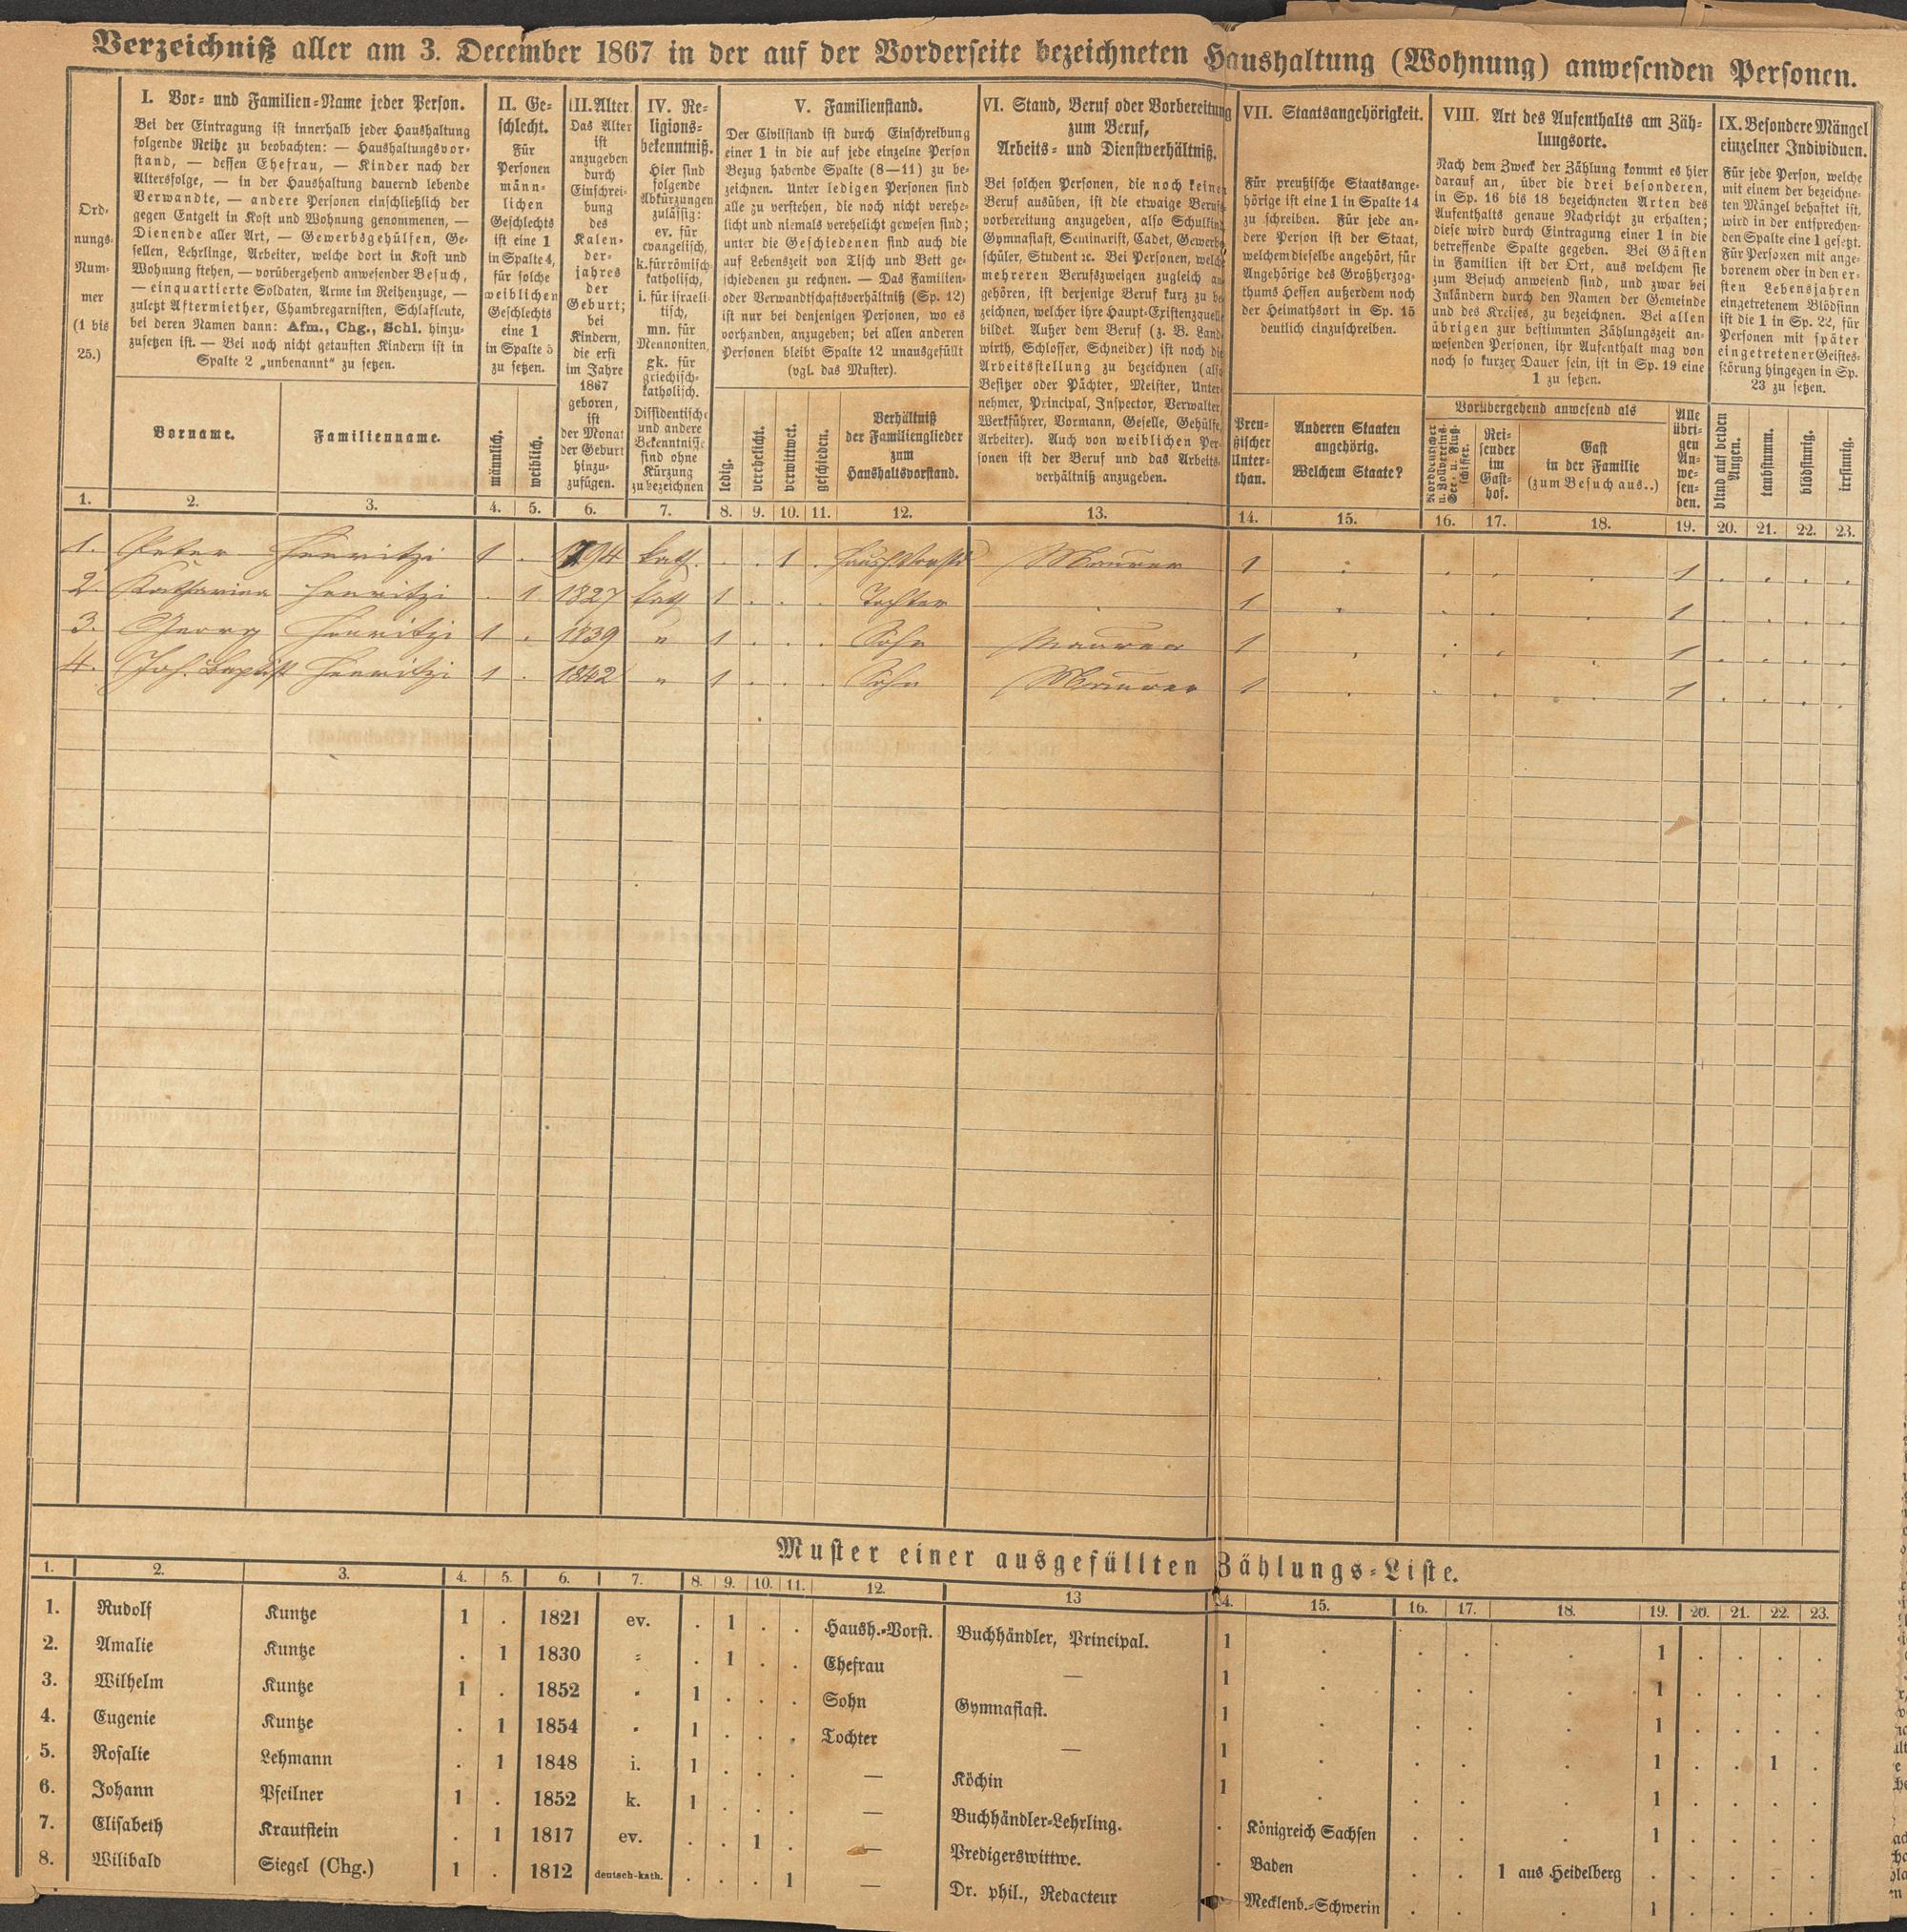 Verzeichniß aller am 3. December 1867 in der auf der Vorderseite bezeichneten Haushaltung (Wohnung) anwesenden Personen.
Ord-
nungs-
Num-
mer
(1 bis
25.)
I. Vor- und Familien-Name jeder Person.
Bei der Eintragung ist innerhalb jeder Haushaltung
folgende Reihe zu beobachten: — Haushaltungsvor-
stand, — dessen Ehefrau, — Kinder nach der
Altersfolge, — in der Haushaltung dauernd lebende
Verwandte, — andere Personen einschließlich der
gegen Entgelt in Kost und Wohnung genommenen, —
Dienende aller Art, — Gewerbsgehülfen, Ge-
sellen, Lehrlinge, Arbeiter, welche dort in Kost und
Wohnung stehen, — vorübergehend anwesender Besuch,
— einquartierte Soldaten, Arme im Reihenzuge, —
zuletzt Aftermiether, Chambregarnisten, Schlafleute,
bei deren Namen dann: Afm., Chg., Schl. hinzu-
zusetzen ist. — Bei noch nicht getauften Kindern ist in
Spalte 2 „unbenannt" zu setzen.
Vorname.
Familienname.
II. Ge-
schlecht.
Für
Personen
männ-
lichen
Geschlechts
ist eine 1
in Spalte 4,
für solche
weiblichen
Geschlechts
eine 1
in Spalte 5
zu setzen.
männlich.
weiblich.
III. Alter
Das Alter
ist
anzugeben
durch
Einschrei-
bung
des
Kalen-
der-
jahres
der
Geburt;
bei
Kindern,
die erst
im Jahre
1867
geboren,
ist
der Monat
der Geburt
hinzu-
zufügen.
IV. Re-
ligions-
bekenntniß.
Hier sind
folgende
Abkürzungen
zulässig:
ev. für
evangelisch,
k. für römisch-
katholisch,
i. für israeli-
tisch,
mn. für
Mennoniten,
gk. für
griechisch-
katholisch.
Dissidentische
und andere
Bekenntnisse
sind ohne
Kürzung
zu bezeichnen
V. Familienstand.
Der Civilstand ist durch Einschreibung
einer 1 in die auf jede einzelne Person
Bezug habende Spalte (8—11) zu be-
zeichnen. Unter ledigen Personen sind
alle zu verstehen, die noch nicht verehe-
licht und niemals verehelicht gewesen sind;
unter die Geschiedenen sind auch die
auf Lebenszeit von Tisch und Bett ge-
schiedenen zu rechnen. — Das Familien-
oder Verwandtschaftsverhältniß (Sp. 12)
ist nur bei denjenigen Personen, wo es
vorhanden, anzugeben; bei allen anderen
Personen bleibt Spalte 12 unausgefüllt
(vgl. das Muster).
ledig.
verehelicht.
verwittwet.
geschieden.
Verhältniß
der Familienglieder
zum
Haushaltsvorstand.
VI. Stand, Beruf oder Vorbereitung
zum Beruf,
Arbeits- und Dienstverhältniß.
Bei solchen Personen, die noch keinen
Beruf ausüben, ist die etwaige Berufs-
vorbereitung anzugeben, also Schulkind
Gymnasiast, Seminarist, Cadet, Gewerbe-
schüler, Student ꝛc. Bei Personen, welche
mehreren Berufszweigen zugleich an-
gehören, ist derjenige Beruf kurz zu be-
zeichnen, welcher ihre Haupt-Existenzquelle
bildet. Außer dem Beruf (z. B. Land-
wirth, Schlosser, Schneider) ist noch die
Arbeitsstellung zu bezeichnen (also
Besitzer oder Pächter, Meister, Unter-
nehmer, Principal, Inspector, Verwalter,
Werkführer, Vormann, Geselle, Gehülfe,
Arbeiter). Auch von weiblichen Per-
sonen ist der Beruf und das Arbeits-
verhältniß anzugeben.
VII. Staatsangehörigkeit.
Für preußische Staatsange-
hörige ist eine 1 in Spalte 14
zu schreiben. Für jede an-
dere Person ist der Staat,
welchem dieselbe angehört, für
Angehörige des Großherzog-
thums Hessen außerdem noch
der Heimathsort in Sp. 15
deutlich einzuschreiben.
Preu-
ßischer
Unter-
than.
Anderen Staaten
angehörig.
Welchem Staate?
VIII. Art des Aufenthalts am Zäh-
lungsorte.
Nach dem Zweck der Zählung kommt es hier
darauf an, über die drei besonderen,
in Sp. 16 bis 18 bezeichneten Arten des
Aufenthalts genaue Nachricht zu erhalten;
diese wird durch Eintragung einer 1 in die
betreffende Spalte gegeben. Bei Gästen
in Familien ist der Ort, aus welchem sie
zum Besuch anwesend sind, und zwar bei
Inländern durch den Namen der Gemeinde
und des Kreises, zu bezeichnen. Bei allen
übrigen zur bestimmten Zählungszeit an-
wesenden Personen, ihr Aufenthalt mag von
noch so kurzer Dauer sein, ist in Sp. 19 eine
1 zu setzen.
Vorübergehend anwesend als
Norddeutscher
u. Zollvereins-
See- u. Fluß-
schiffer.
Rei-
sender
im
Gast-
hof.
Gast
in der Familie
(zum Besuch aus..)
Alle
übri-
gen
An-
we-
sen-
den.
IX. Besondere Mängel
einzelner Individuen.
Für jede Person, welche
mit einem der bezeichne-
ten Mängel behaftet ist,
wird in der entsprechen-
den Spalte eine 1 gesetzt.
Für Personen mit ange-
borenem oder in den er-
sten Lebensjahren
eingetretenem Blödsinn
ist die 1 in Sp. 22, für
Personen mit später
eingetretener Geistes-
störung hingegen in Sp.
23 zu setzen.
blind auf beiden
Augen.
taubstumm.
blödsinnig.
irrsinnig.
1. 2. 3. 4. 5. 6. 7. 8. 9. 10. 11. 12. 13. 14. 15. 16. 17. 18. 19. 20. 21. 22. 23.
1. Peter Henritzi 1 . 1794 kath. . . 1 . Haush.Vorstd Maurer 1 . . . . 1 . . . .
2. Katharina Henritzi . 1 1827 kath 1 . . . Tochter . 1 . . . . 1 . . . .
3. Georg Henritzi 1 . 1839 " 1 . . . Sohn Maurer 1 . . . . 1 . . . .
4. Joh. Baptist Henritzi 1 . 1842 " 1 . . . Sohn Maurer 1 . . . . 1 . . . .
Muster einer ausgefüllten Zählungs-Liste.
1. 2. 3. 4. 5. 6. 7. 8. 9. 10. 11. 12. 13 14. 15. 16. 17. 18. 19. 20. 21. 22. 23.
1. Rudolf Kuntze 1 . 1821 ev. . 1 . . Haush.-Vorst. Buchhändler, Principal. 1 . . . . 1 . . . .
2. Amalie Kuntze . 1 1830 " . 1 . . Ehefrau — 1 . . . . 1 . . . .
3. Wilhelm Kuntze 1 . 1852 " 1 . . . Sohn Gymnasiast. 1 . . . . 1 . . . .
4. Eugenie Kuntze . 1 1854 " 1 . . . Tochter — 1 . . . . 1 . . 1 .
5. Rosalie Lehmann . 1 1848 i. 1 . . . — Köchin 1 . . . . 1 . . . .
6. Johann Pfeilner 1 . 1852 k. 1 . . . — Buchhändler-Lehrling. . Königreich Sachsen . . . 1 . . . .
7. Elisabeth Krautstein . 1 1817 ev. . . 1 . — Predigerswittwe. . Baden . . 1 aus Heidelberg . . . . .
8. Wilibald Siegel (Chg.) 1 . 1812 deutsch-kath. . . . 1 — Dr. phil., Redacteur . Mecklenb.-Schwerin . . . 1 . . . .